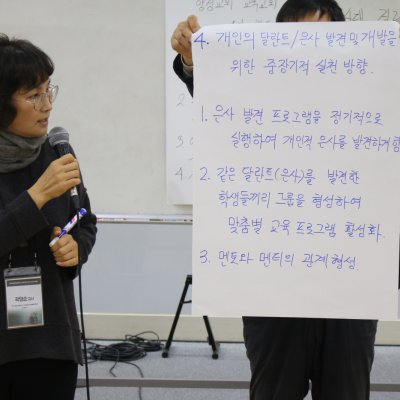 4. 개인의 달란트/은사 발견및개발을
위한 중장기적 실천 방향.
1. 은사 발견 프로그램을 정기적으로
실행하여 개인적 은사를 발견하게함
2. 같은 달란트(은사)를 발견한
학생들끼리 그룹을 형성하여
맞춤별 교육 프로그램 활성화.
3. 멘토와 멘티의 관계형성.